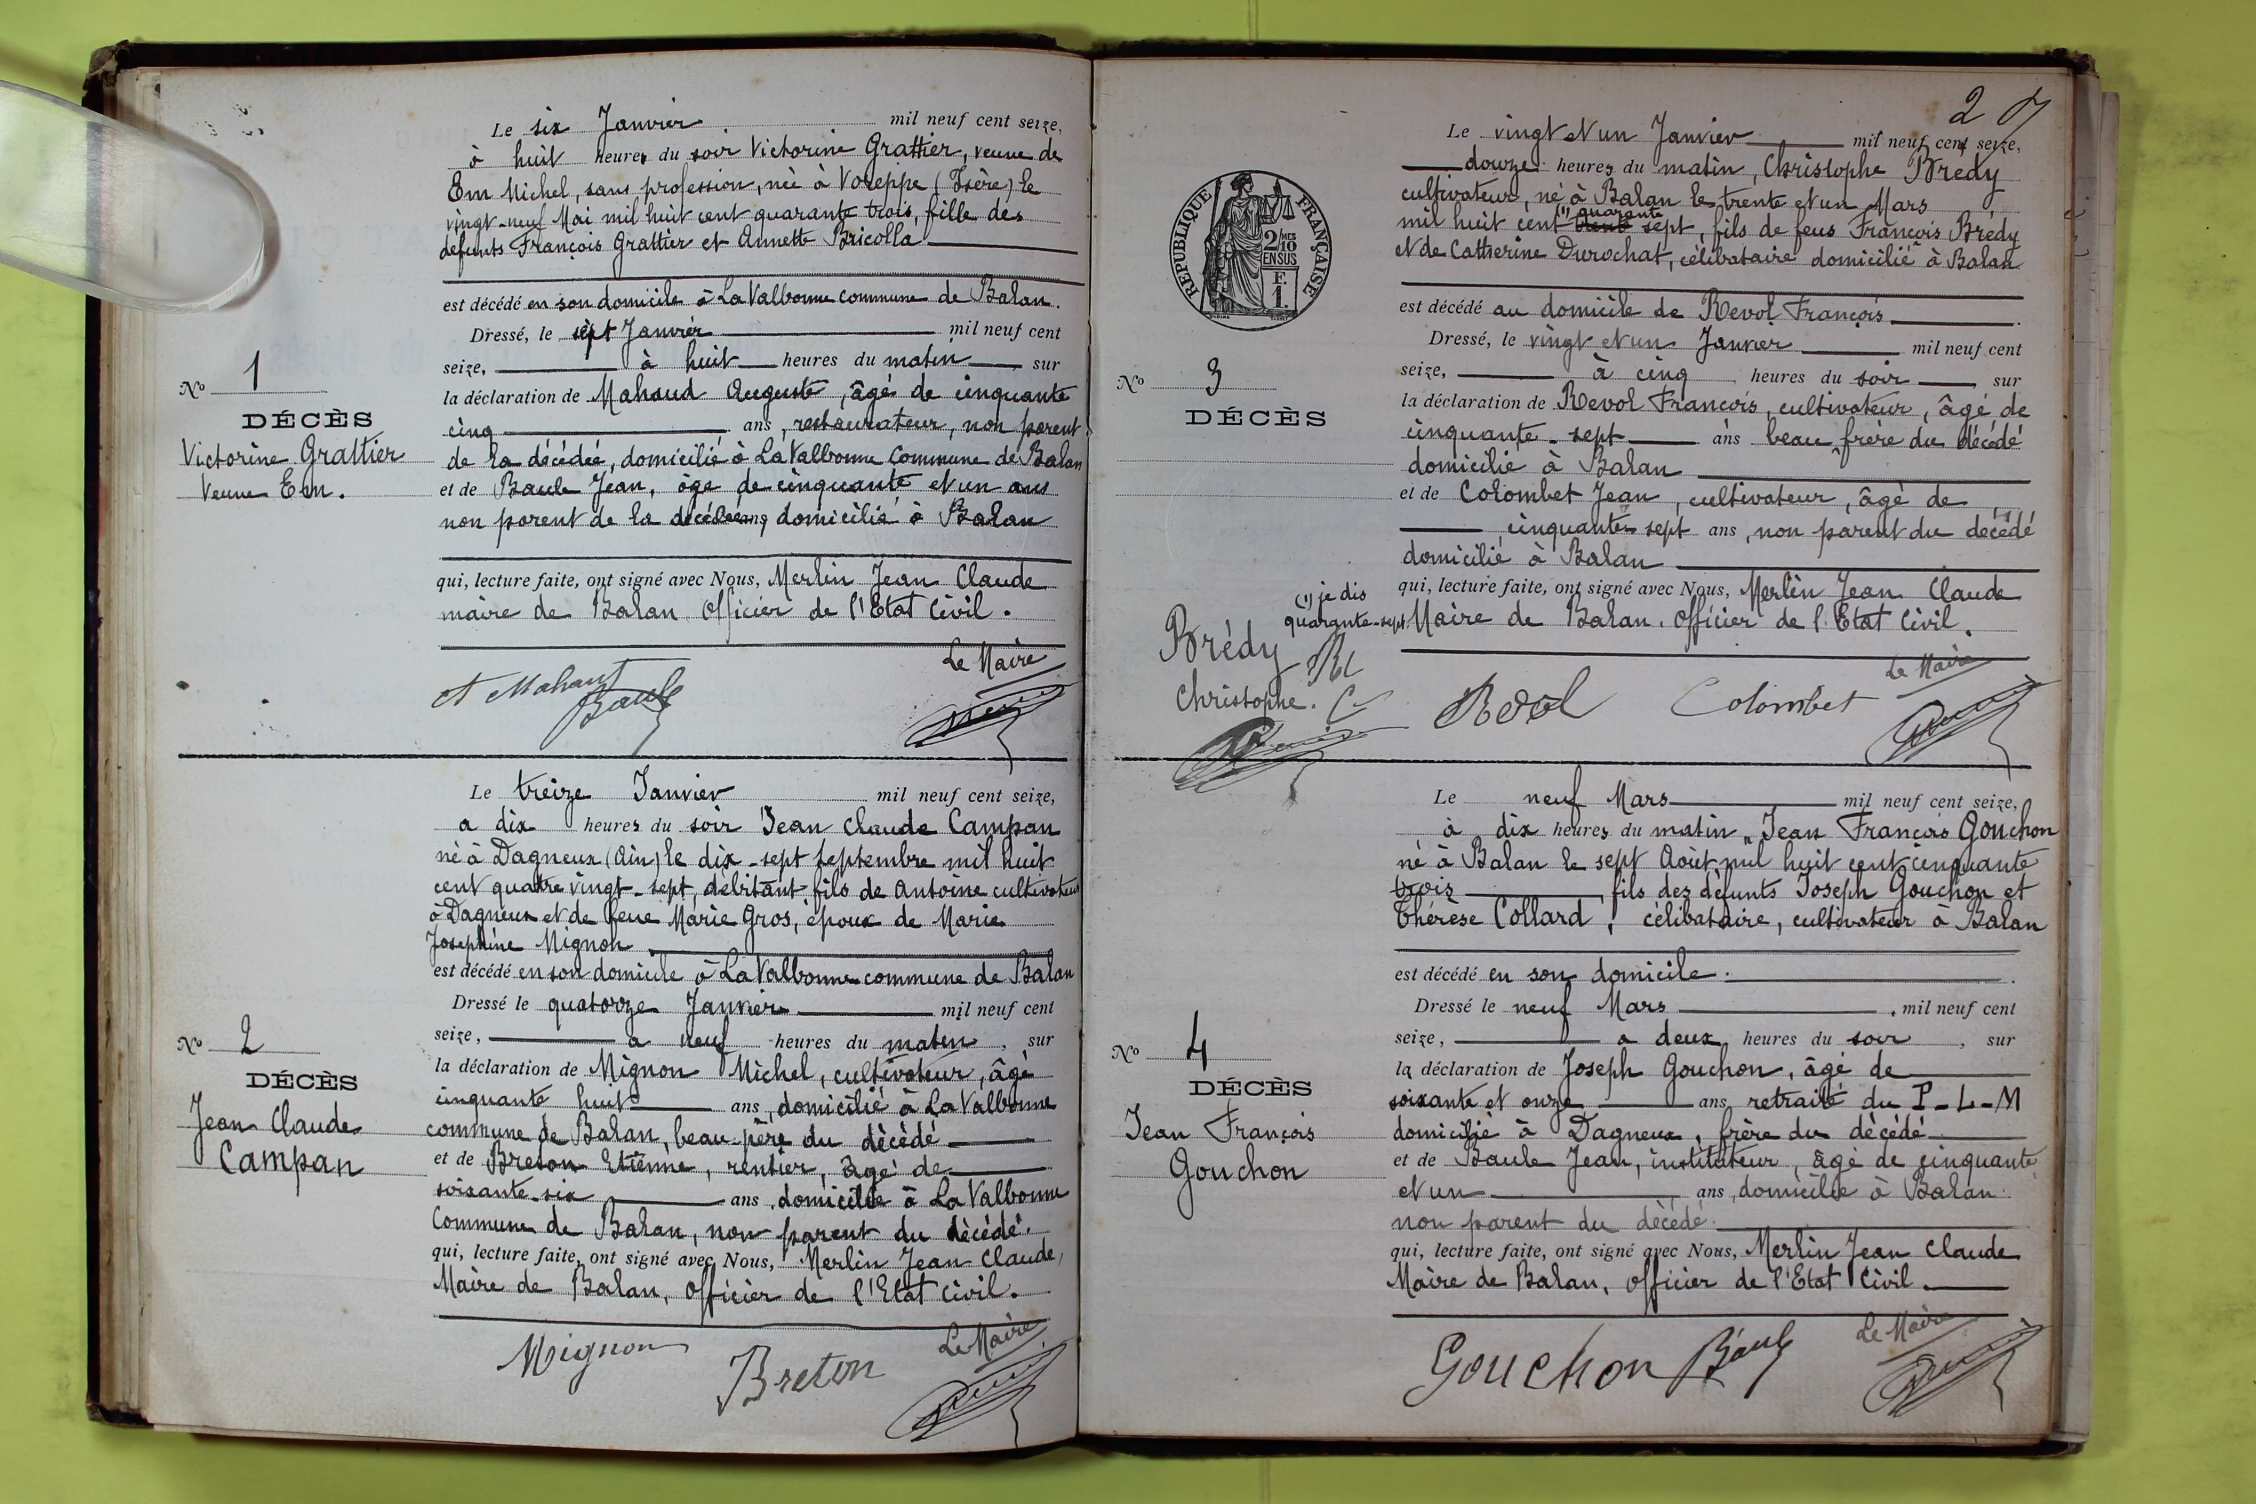 Le six Janvier mil neuf cent seize,
à huit heures du soir Victorine Grattier, veuve de
Em Michel, sans profession, née à Voreppe (Isère) le
vingt-neuf Mai mil huit cent quarante trois, fille des
défunts François Grattier et Annette Bricolla
est décédé en son domicile à La Valbonne commune de Balan.
Dressé, le sept Janvier mil neuf cent
seize, à huit heures du matin sur
la déclaration de Mahaud Auguste, âgé de cinquante
cinq ans, restaurateur, non parent
de la décédée, domicilié à La Valbonne Commune de Balan
et de Baule Jean, âgé de cinquante et un ans
non parent de la domicilié à Balan
qui, lecture faite, ont signé avec Nous, Merlin Jean Claude
maire de Balan Officier de l'Etat Civil.
Le Maire
Baule
No 1
DÉCÈS
Victorine Grattier
Veuve Em.
Le treize Janvier mil neuf cent seize,
a dix heures du soir Jean Claude Campan
né à Dagneux (Ain) le dix-sept Septembre mil huit
cent quatre vingt-sept, débitant fils de Antoine cultivateur
à Dagneux et de feue Marie Gros, époux de Marie
Joséphine Mignon
est décédé en son domicile à La Valbonne commune de Balan
Dressé le quatorze Janvier mil neuf cent
seize, a neuf heures du matin, sur
la déclaration de Mignon Michel, cultivateur, âgé
cinquante huit ans, domicilié à La Valbonne
commune de Balan, beau-père du décédé
et de Breton Etienne, rentier, âgé de
soixante-six ans domicilié à La Valbonne
Commune de Balan, non parent du décédé.
qui, lecture faite, ont signé avec Nous, Merlin Jean Claude,
Maire de Balan, Officier de l'Etat Civil.
Le Maire
Mignon
Breton
No 2
DÉCÈS
Jean Claude
Campan
2
Le vingt et un Janvier mil neuf cent seize,
douze heures du matin, Christophe Brédy
cultivateur, né à Balan le trente et un Mars
(1) quarante
mil huit cent trente sept, fils de feus François Brédy
et de Catherine Durochat, célibataire domicilié à Balan
est décédé au domicile de Revol François
Dressé, le vingt et un Janvier mil neuf cent
seize, à cinq heures du soir sur
la déclaration de Revol François, cultivateur, âgé de
cinquante-sept ans beau frère du décédé
domicilié à Balan
et de Colombet Jean, cultivateur, âgé de
cinquante-sept ans, non parent du décédé
domicilié à Balan
qui, lecture faite, ont signé avec Nous, Merlin Jean Claude
Maire de Balan. Officier de l'Etat Civil.
Le Maire
Revol
Colombet
RÉPUBLIQUE FRANÇAISE
2/10 MES
EN SUS
F.
1.
No 3
DÉCÈS
(1) je dis
quarante-sept
Brédy
Christophe.
Le neuf Mars mil neuf cent seize,
à dix heures du matin Jean François Gouchon
né à Balan le sept Août mil huit cent cinquante
trois fils des défunts Joseph Gouchon et
Thérèse Collard, célibataire, cultivateur à Balan
est décédé en son domicile.
Dressé le neuf Mars mil neuf cent
seize, a deux heures du soir, sur
la déclaration de Joseph Gouchon, âgé de
soixante et onze ans retraité du P-L-M
domicilié à Dagneux, frère du décédé
et de Baule Jean, instituteur, âgé de cinquante
et un ans, domicilié à Balan
non parent du décédé
qui, lecture faite, ont signé avec Nous, Merlin Jean Claude
Maire de Balan, Officier de l'Etat Civil.
Le Maire
Gouchon
Baule
No 4
DÉCÈS
Jean François
Gouchon